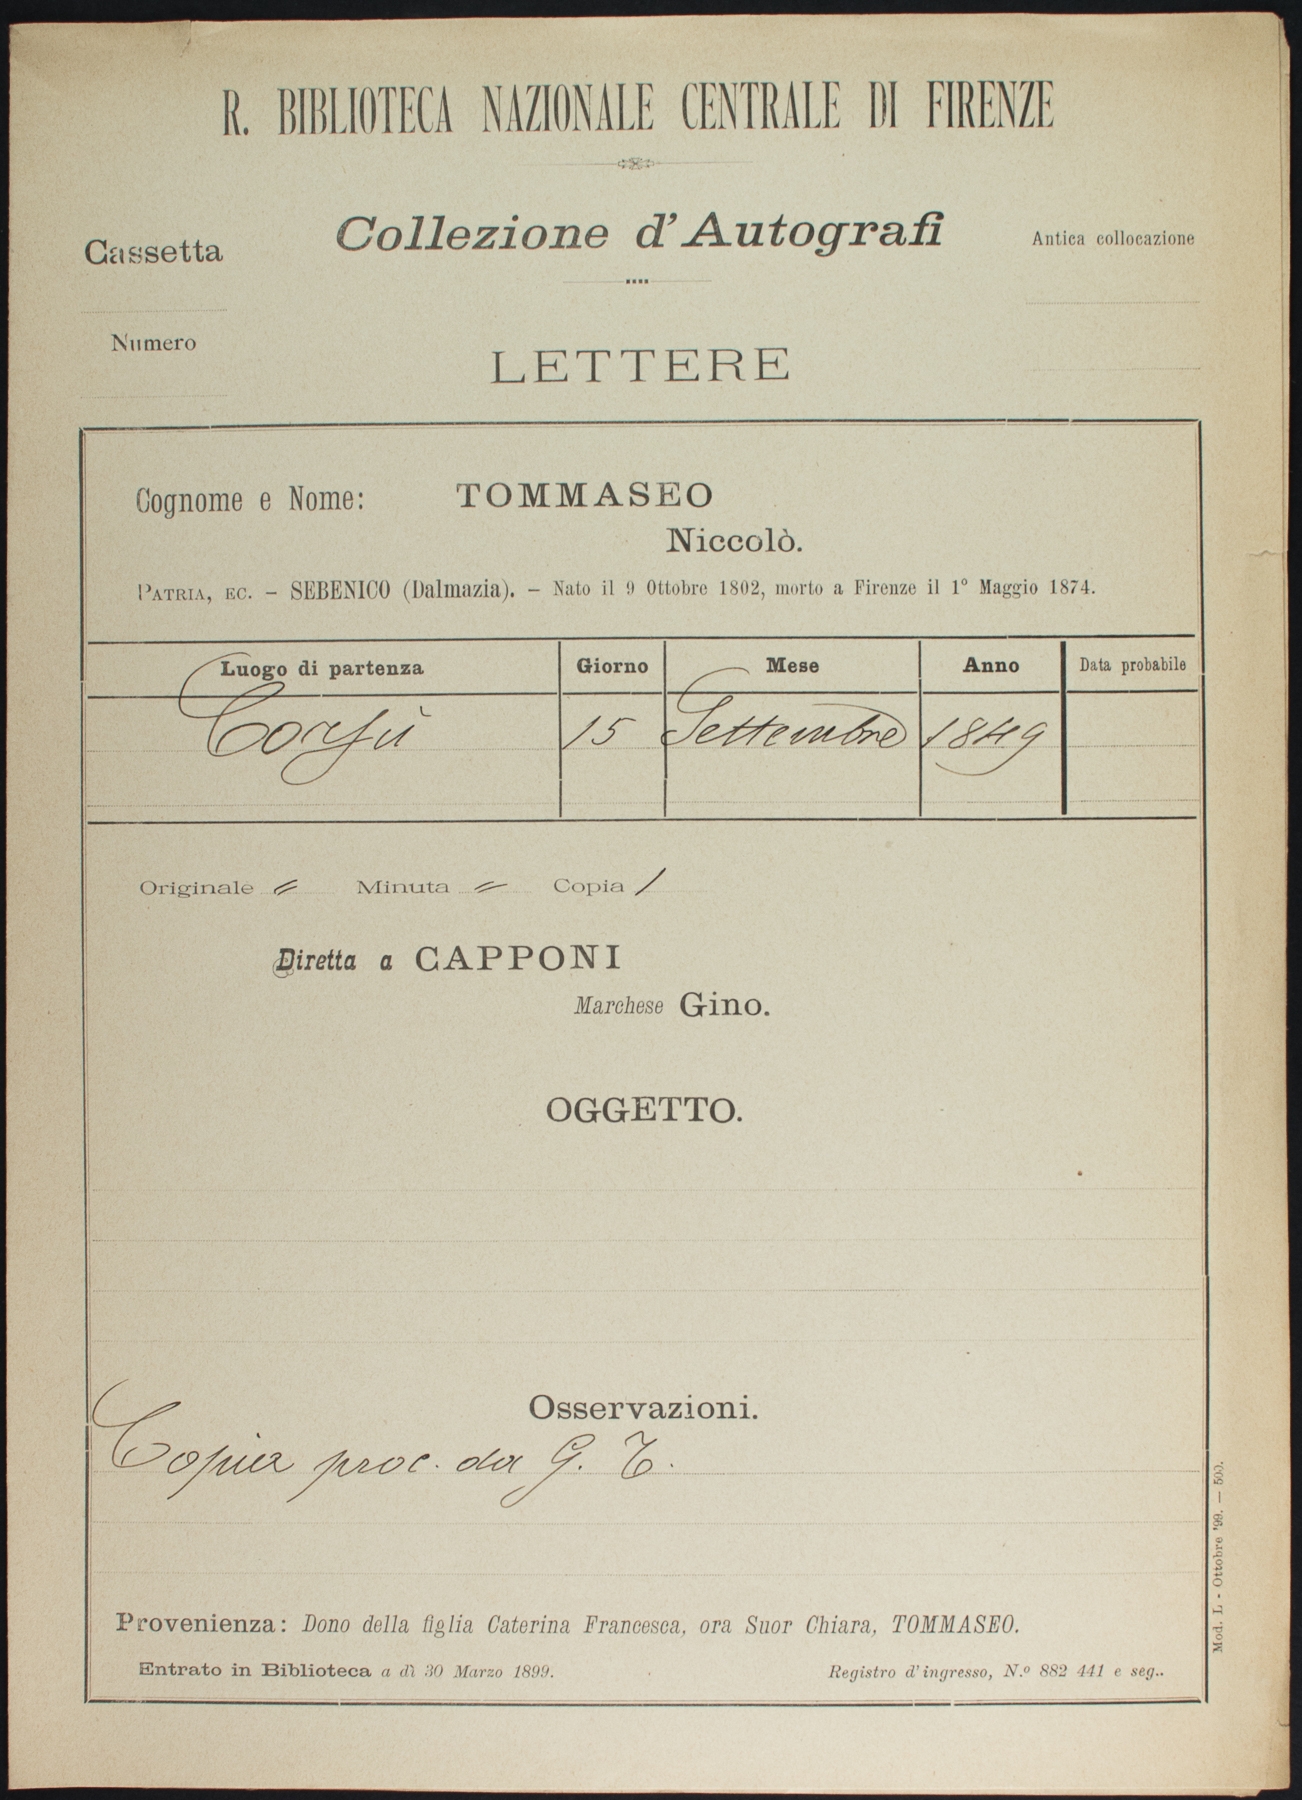 R. BIBLIOTECA NAZIONALE CENTRALE DI FIRENZE
Cassetta
Collezione d'Autografi
Antica collocazione
Numero
LETTERE
Cognome e Nome: TOMMASEO
Niccolò.
PATRIA, EC. – SEBENICO (Dalmazia). – Nato il 9 Ottobre 1802, morto a Firenze il 1º Maggio 1874.
Luogo di partenza Giorno Mese Anno Data probabile
Corfù 15 Settembre 1849
Originale = Minuta = Copia /
Diretta a CAPPONI
Marchese Gino.
OGGETTO.
Osservazioni.
Copia proc. da G. T.
Provenienza: Dono della figlia Caterina Francesca, ora Suor Chiara, TOMMASEO.
Entrato in Biblioteca a dì 30 Marzo 1899. Registro d'ingresso, N.º 882 441 e seg..
Mod. L - Ottobre '99. — 500.